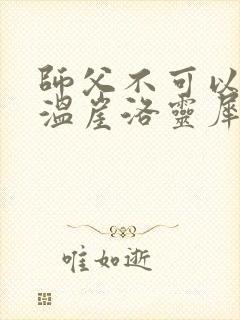 師父不可以
溫崖洛靈犀
唯如逝